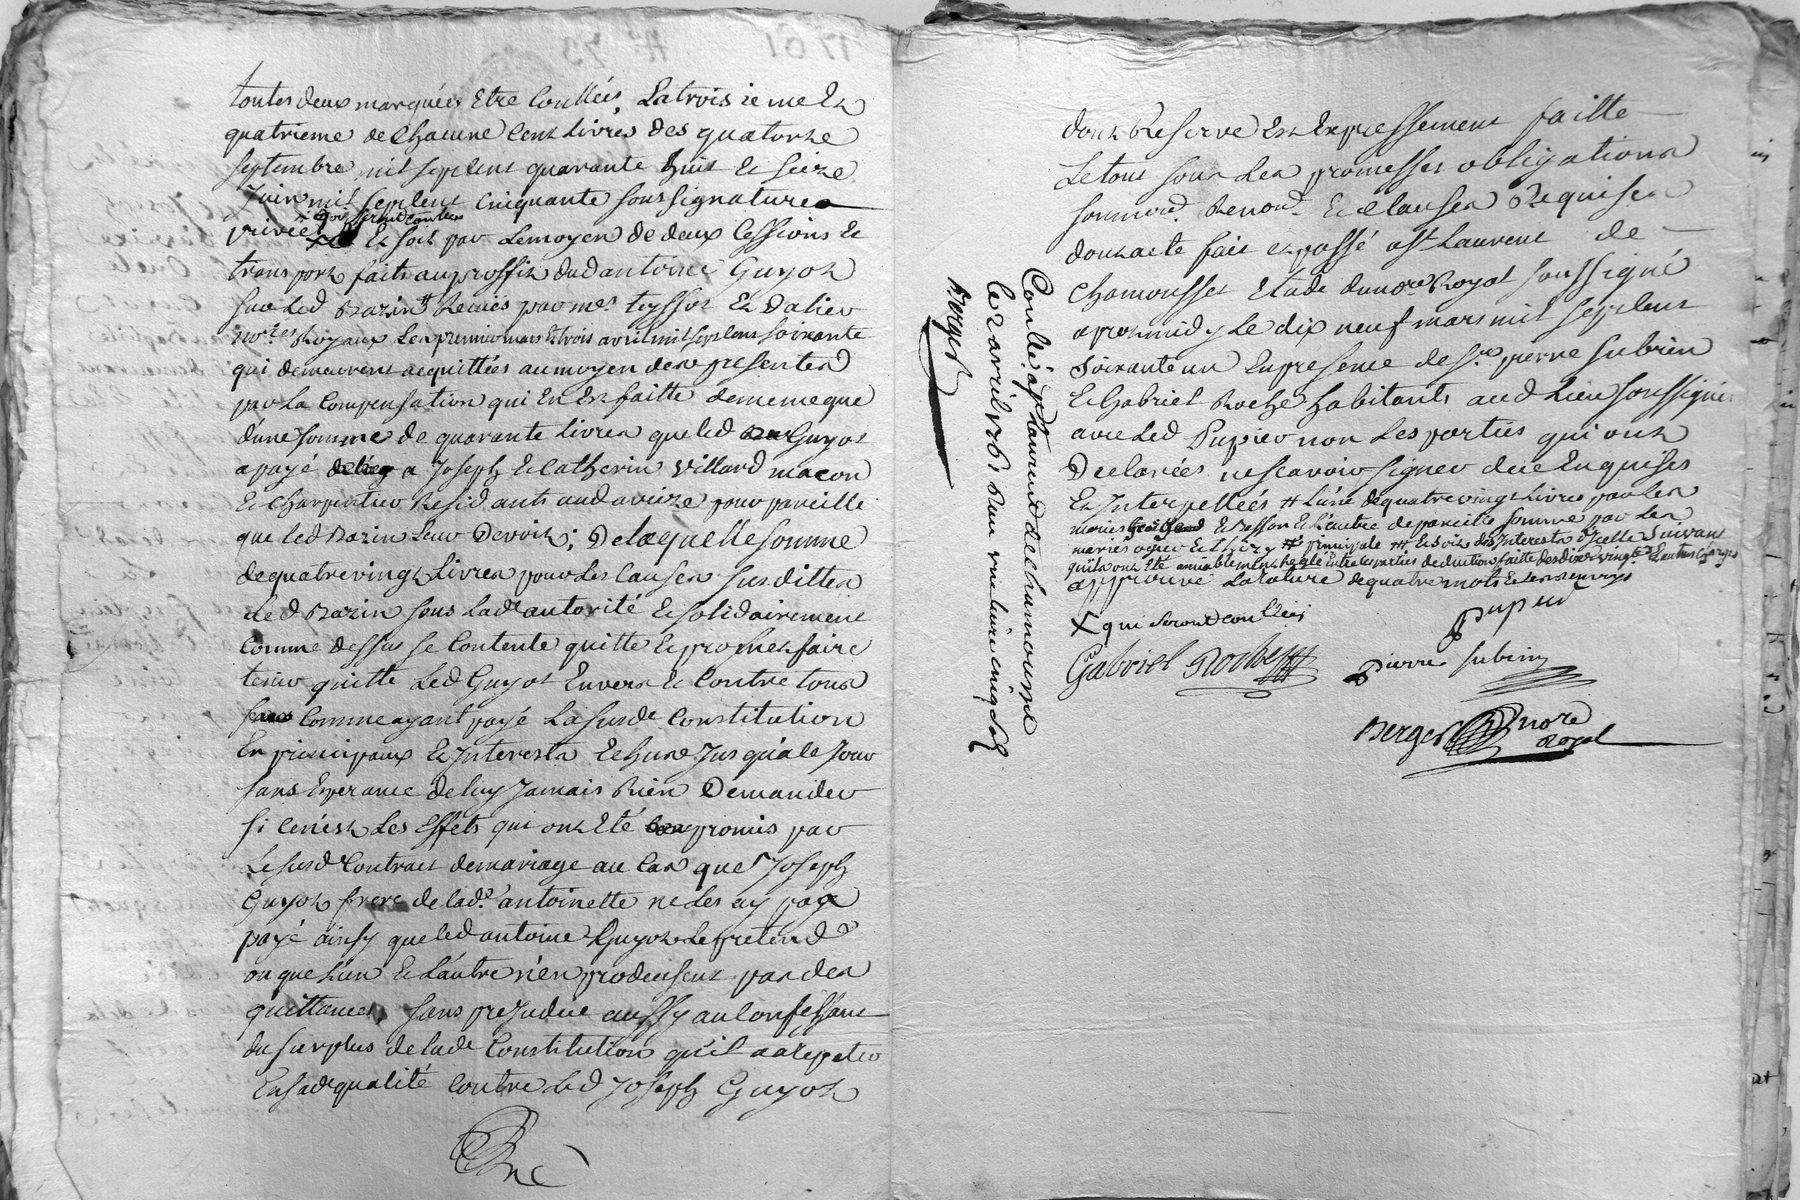 toutes deux marquées Etre Coullées, La troisieme Et
quatrieme de Chacune Cent Livres des quatorse
septembre mil sept Cent quarante huit Et seize
Juin mil sept Cent Cinquante sous signatures
qui seront coullées
privées Et soit par Le moyen de deux Cessions Et
transport faits au proffit dud antoine Guyot
sur Led Bazin # Receües par mes teyssot Et Dalier
nores Royaux Les premier mars Et trois avril mil sept Cent soixante
qui demeurent acquittées au moyen des presentes
par La Compensation qui En Est faitte de meme que
d'une somme de quarante Livres que Led Guyot
a payé a Joseph Et Catherin Villard macon
Et Charpentier Residants aud aveize pour pareille
que Led Bazin Leur Devoit ; De laquelle somme
de quatre vingt Livres pour Les Causes susdittes
Led Bazin sous lade autorité Et solidairement
Comme dessus se Contente quitte Et promet faire
tenir quitte Led Guyot Envers Et Contre tous
Comme ayant payé La susde Constitution
En principaux Et Interests Echus Jusqu'a Ce Jour
sans Esperance de luy Jamais Rien Demander
si Ce n'est Les Effets qui ont Eté promis par
Le susd Contract de mariage au Cas que Joseph
Guyot frere de lade antoinette ne Les ay pas
payé ainsy que Led antoine Guyot Le pretend
ou que L'un Et L'autre n'en produisent pas des
quittances, sans prejudice aussy au Confessant
du surplus de lade Constitution qu'il a a Repeter
En sade qualité Contre Led Joseph Guyot
dont Reserve Est Expressement faitte
Le tout sous Les promesses obligations
soumond Renond Et Clauses Requises
dont acte fait et passé a St Laurent de
Chamousset Etude du nore Royal soussigné
apres midy Le dix neuf mars mil sept Cent
soixante un En presence de Sr pierre subrin
Et Gabriel Roche habitants aud Lieu soussignés
avec Led Pupier non Les parties qui ont
Declarées ne scavoir signer de ce Enquises
Et Interpellées # L'une de quatre vingt Livres par Les
mariés Et Besson Et L'autre de pareille somme par Les
mariés Et thiry # principale # Et soit des Interests d'Icelle suivant
qu'ils ont Eté amiablement Reglé Entre Les parties deduction faitte des dixe vingte Et autres Charges
approuvé La rature de quatre mots Et Les renvoys
X qui seront coullées
Pupier
Gabriel Roche
pierre subrin
Berger nore
Royal
Conllé a St Laurent de chamousset
le 2 avril 1761 Reçu une livre cinq sols
Berger